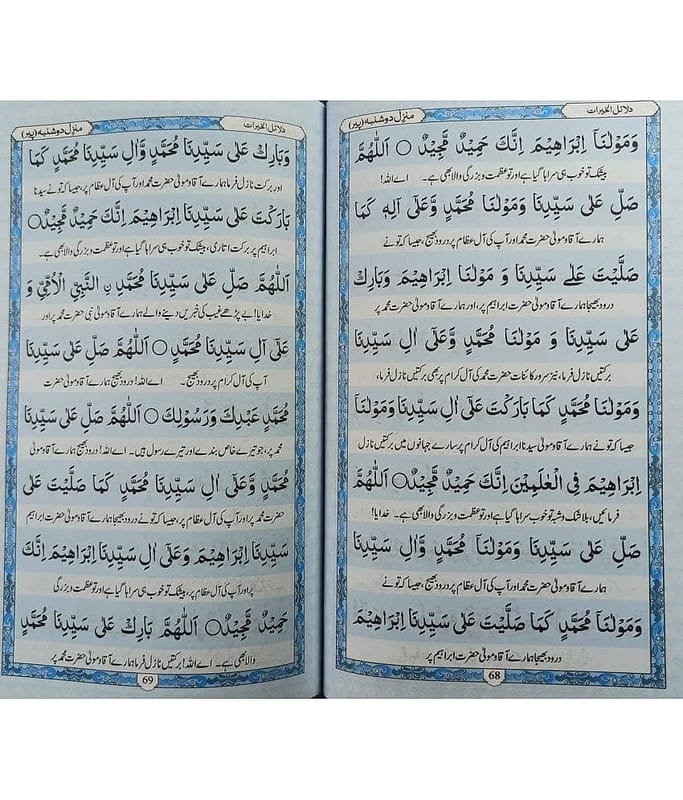 دلائل الخيرات
منزل دوشنبه (پیر)
وَمَوْلٰنَآ اِبْرَاهِيْمَ اِنَّكَ حَمِيْدٌ مَّجِيْدٌ ○ اَللّٰهُمَّ
بیشک تو خوب ہی سراہا گیا ہے اور تو عظمت و بزرگی والا بھی ہے۔ اے اللہ!
صَلِّ عَلٰى سَيِّدِنَا وَمَوْلٰنَا مُحَمَّدٍ وَّعَلٰٓى اٰلِهٖ كَمَا
ہمارے آقا و مولیٰ حضرت محمد اور آپ کی آل عظام پر درود بھیج، جیسا کہ تو نے
صَلَّيْتَ عَلٰى سَيِّدِنَا وَ مَوْلٰنَا اِبْرَاهِيْمَ وَبَارِكْ
درود بھیجا ہمارے آقا و مولیٰ حضرت ابراہیم پر، اور ہمارے آقا و مولیٰ حضرت محمد پر
عَلٰى سَيِّدِنَا وَ مَوْلٰنَا مُحَمَّدٍ وَّعَلٰٓى اٰلِ سَيِّدِنَا
برکتیں نازل فرما، نیز سرور کائنات حضرت محمد کی آل کرام پر بھی برکتیں نازل فرما،
وَمَوْلٰنَا مُحَمَّدٍ كَمَا بَارَكْتَ عَلٰٓى اٰلِ سَيِّدِنَا وَمَوْلٰنَآ
جیسا کہ تو نے ہمارے آقا و مولیٰ سیدنا ابراہیم کی آل کرام پر سارے جہانوں میں برکتیں نازل
اِبْرَاهِيْمَ فِى الْعٰلَمِيْنَ اِنَّكَ حَمِيْدٌ مَّجِيْدٌ ○ اَللّٰهُمَّ
فرمائیں، بلا شک و شبہ تو خوب سراہا گیا ہے اور تو عظمت و بزرگی والا بھی ہے۔ خدایا!
صَلِّ عَلٰى سَيِّدِنَا وَمَوْلٰنَآ مُحَمَّدٍ وَّاٰلِ سَيِّدِنَا
ہمارے آقا و مولیٰ حضرت محمد اور آپ کی آل عظام پر درود بھیج، جیسا کہ تو نے
وَمَوْلٰنَآ مُحَمَّدٍ كَمَا صَلَّيْتَ عَلٰى سَيِّدِنَا اِبْرَاهِيْمَ
درود بھیجا ہمارے آقا و مولیٰ حضرت ابراہیم پر
68
دلائل الخيرات
منزل دوشنبه (پیر)
وَبَارِكْ عَلٰى سَيِّدِنَا مُحَمَّدٍ وَّاٰلِ سَيِّدِنَا مُحَمَّدٍ كَمَا
اور برکت نازل فرما ہمارے آقا و مولیٰ حضرت محمد اور آپ کی آل عظام پر، جیسا کہ تو نے سیدنا
بَارَكْتَ عَلٰى سَيِّدِنَا اِبْرَاهِيْمَ اِنَّكَ حَمِيْدٌ مَّجِيْدٌ ○
ابراہیم پر برکت اتاری، بیشک تو خوب ہی سراہا گیا ہے اور تو عظمت و بزرگی والا بھی ہے۔
اَللّٰهُمَّ صَلِّ عَلٰى سَيِّدِنَا مُحَمَّدِ نِ النَّبِيِّ الْاُمِّيِّ وَ
خدایا! بے پڑھے غیب کی خبریں دینے والے ہمارے آقا و مولیٰ نبی حضرت محمد پر اور
عَلٰٓى اٰلِ سَيِّدِنَا مُحَمَّدٍ ○ اَللّٰهُمَّ صَلِّ عَلٰى سَيِّدِنَا
آپ کی آل کرام پر درود بھیج۔ اے اللہ! درود بھیج ہمارے آقا و مولیٰ حضرت
مُحَمَّدٍ عَبْدِكَ وَرَسُوْلِكَ ○ اَللّٰهُمَّ صَلِّ عَلٰى سَيِّدِنَا
محمد پر، جو تیرے خاص بندے اور تیرے رسول ہیں۔ اے اللہ! درود بھیج ہمارے آقا و مولیٰ
مُحَمَّدٍ وَّعَلٰٓى اٰلِ سَيِّدِنَا مُحَمَّدٍ كَمَا صَلَّيْتَ عَلٰى
حضرت محمد پر اور آپ کی آل عظام پر، جیسا کہ تو نے درود بھیجا ہمارے آقا و مولیٰ حضرت ابراہیم
سَيِّدِنَا اِبْرَاهِيْمَ وَعَلٰٓى اٰلِ سَيِّدِنَا اِبْرَاهِيْمَ اِنَّكَ
پر اور آپ کی آل عظام پر، بیشک تو خوب ہی سراہا گیا ہے اور تو عظمت و بزرگی
حَمِيْدٌ مَّجِيْدٌ ○ اَللّٰهُمَّ بَارِكْ عَلٰى سَيِّدِنَا مُحَمَّدٍ
والا بھی ہے۔ اے اللہ! برکتیں نازل فرما ہمارے آقا و مولیٰ حضرت محمد پر
69